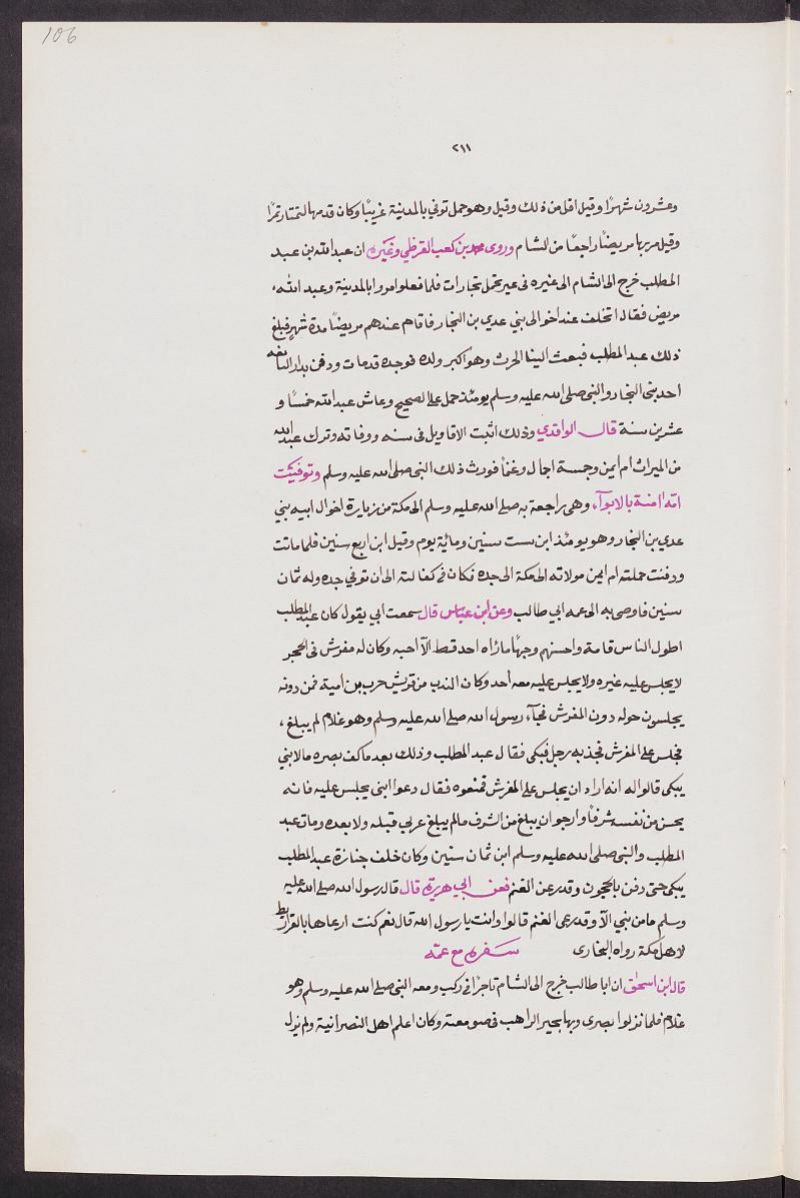 106
٢١١
وعشرون شهرًا وقيل اقل من ذلك وقيل وهو حمل توفي بالمدينة غريبًا وكان قدمها ليمتار تمرًا
وقيل مر بها مريضًا راجعًا من الشام وروى محمد بن كعب القرظي وغيره ان عبد الله بن عبد
المطلب خرج الى الشام الى غيره فى عير تحمل تجارات فلما قفلوا مروا بالمدينة وعبد الله
مريض فقال اتخلف عند اخوالى بني عدي بن النجار فاقام عندهم مريضًا مدة شهر فبلغ
ذلك عبد المطلب فبعث الينا الحرث وهو اكبر ولده فوجده قد مات ودفن بدار النابغه
احد بنى النجار والنبي صلى الله عليه وسلم يومئذ حمل على الصحيح وعاش عبد الله خمسًا و
عشرين سنة قال الواقدي وذلك اثبت الاقاويل فى سنه ووفاته وترك عبد الله
من الميراث ام ايمن وخمسة اجمال وغنمًا فورث ذلك النبي صلى الله عليه وسلم وتوفيت
امّه امنة بالابوآء وهى راجعة به صلى الله عليه وسلم الى مكة من زيارة اخوال ابيه بني
عدي بن النجار وهو يومئذ ابن ست سنين ومائة يوم وقيل ابن اربع سنين فلما ماتت
ودفنت حملته ام ايمن مولاته الى مكة الى جده فكان فى كفالته الى ان توفي جده وله ثمان
سنين فاوصى به الى عمه ابي طالب وعن ابن عباس قال سمعت ابي يقول كان عبد المطلب
اطول الناس قامة واحسنهم وجهًا ماراه احد قط الآ احبه وكان له مفرش فى الحجر
لا يجلس عليه غيره ولا يجلس عليه معه احد وكان الندب من قريش حرب بن امية فمن دونه
يجلسون حوله دون المفرش فجآء رسول الله صلى الله عليه وسلم وهو غلام لم يبلغ،
فجلس على المفرش فجذبه رجل فبكى فقال عبد المطلب وذلك بعد ماكف بصره مالابني
يبكى قالوا له انه اراد ان يجلس على المفرش فمنعوه فقال دعوا ابنى يجلس عليه فانه
يحس من نفسه شرفًا وارجوا ن يبلغ من الشرف مالم يبلغ عربي قبله ولا بعده ومات عبد
المطلب والنبي صلى الله عليه وسلم ابن ثمان سنين وكان خلف جنازة عبد المطلب
يبكى حتى دفن بالحجون وقد رعى الغنم فعن ابي هريرة قال قال رسول الله صلى الله عليه
وسلم مامن نبي الآ وقد رعى الغنم قالوا وانت يا رسول الله قال نعم كنت ارعاها بالقراريط
لاهل مكة رواه البخارى سفره مع عمّه
قال ابن اسحٰق ان ابا طالب خرج الى الشام تاجرًا فى ركب ومعه النبي صلى الله عليه وسلم وهو
غلام فلما نزلوا بصرى وبها بحير الراهب فى صومعته وكان اعلم اهل النصرانية ولم يزل